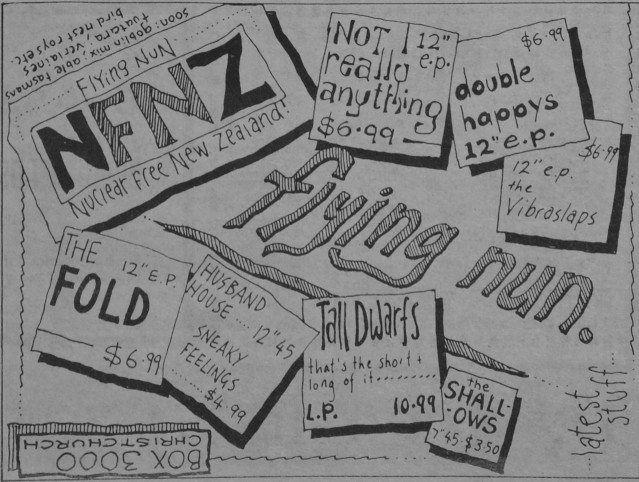 soon: goblin mix, able tasmans
tuatara, verlaines
bird nest roys etc.
Flying Nun
NFNZ
Nuclear Free New Zealand!
NOT
really
anything
12"
e.p.
$6.99
$6.99
double
happys
12" e.p.
$6.99
12" e.p.
the
Vibraslaps
flying nun.
THE
12" E.P.
FOLD
$6.99
HUSBAND
HOUSE .... 12" 45
SNEAKY
FEELINGS
..... $4.99
Tall Dwarfs
that's the short +
long of it........
L.P. 10.99
the
SHALL-
OWS
7"45. $3.50
...latest
stuff...
BOX 3000
CHRISTCHURCH